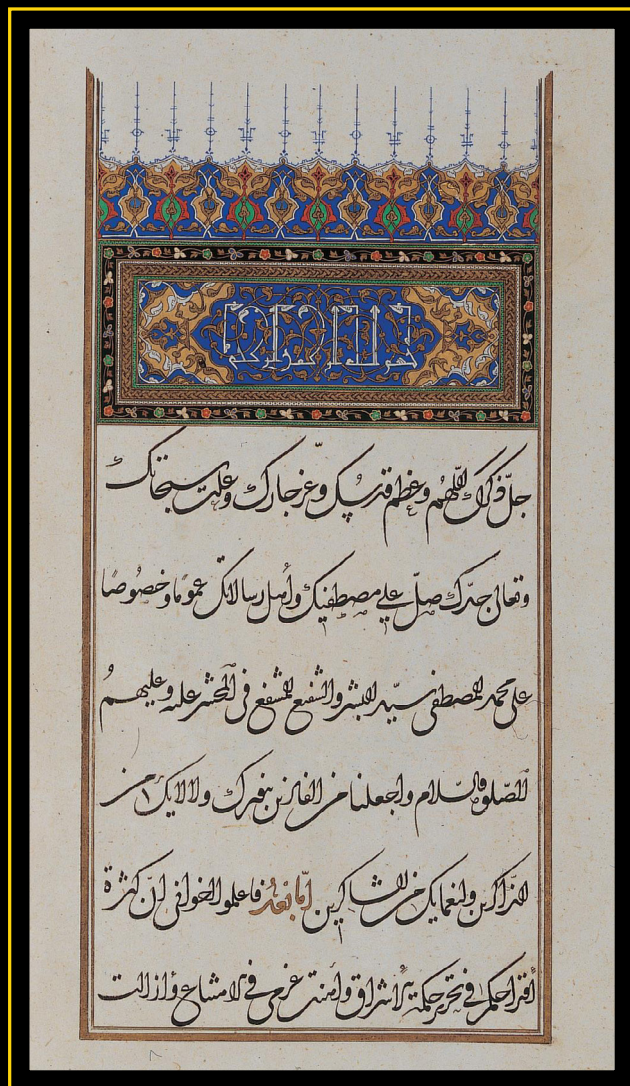 جلّ ذكرك اللّهم وعظم قدسك وعزّ جارك وعلت سبحاتك
وتعالى جدّك صلّ على مصطفيك وأهل رسالاتك عمومًا وخصوصًا
على محمد المصطفى سيّد البشر والشفيع المشفع فى المحشر عليه وعليهم
الصّلوة والسّلام واجعلنا من الفائزين بنورك ولالايك من
الذاكرين ولنعمايك من الشاكرين امّا بعدُ فاعلموا اخوانى انّ كثرة
اقتراحكم فى تحرير حكمة الاشراق عزمى فى الامتناع وازالت